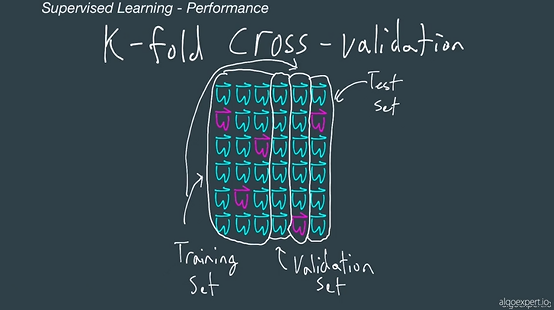 Supervised Learning - Performance
K-fold Cross-validation
Test
Set
Training
Set
Validation
Set
algoexpert.io